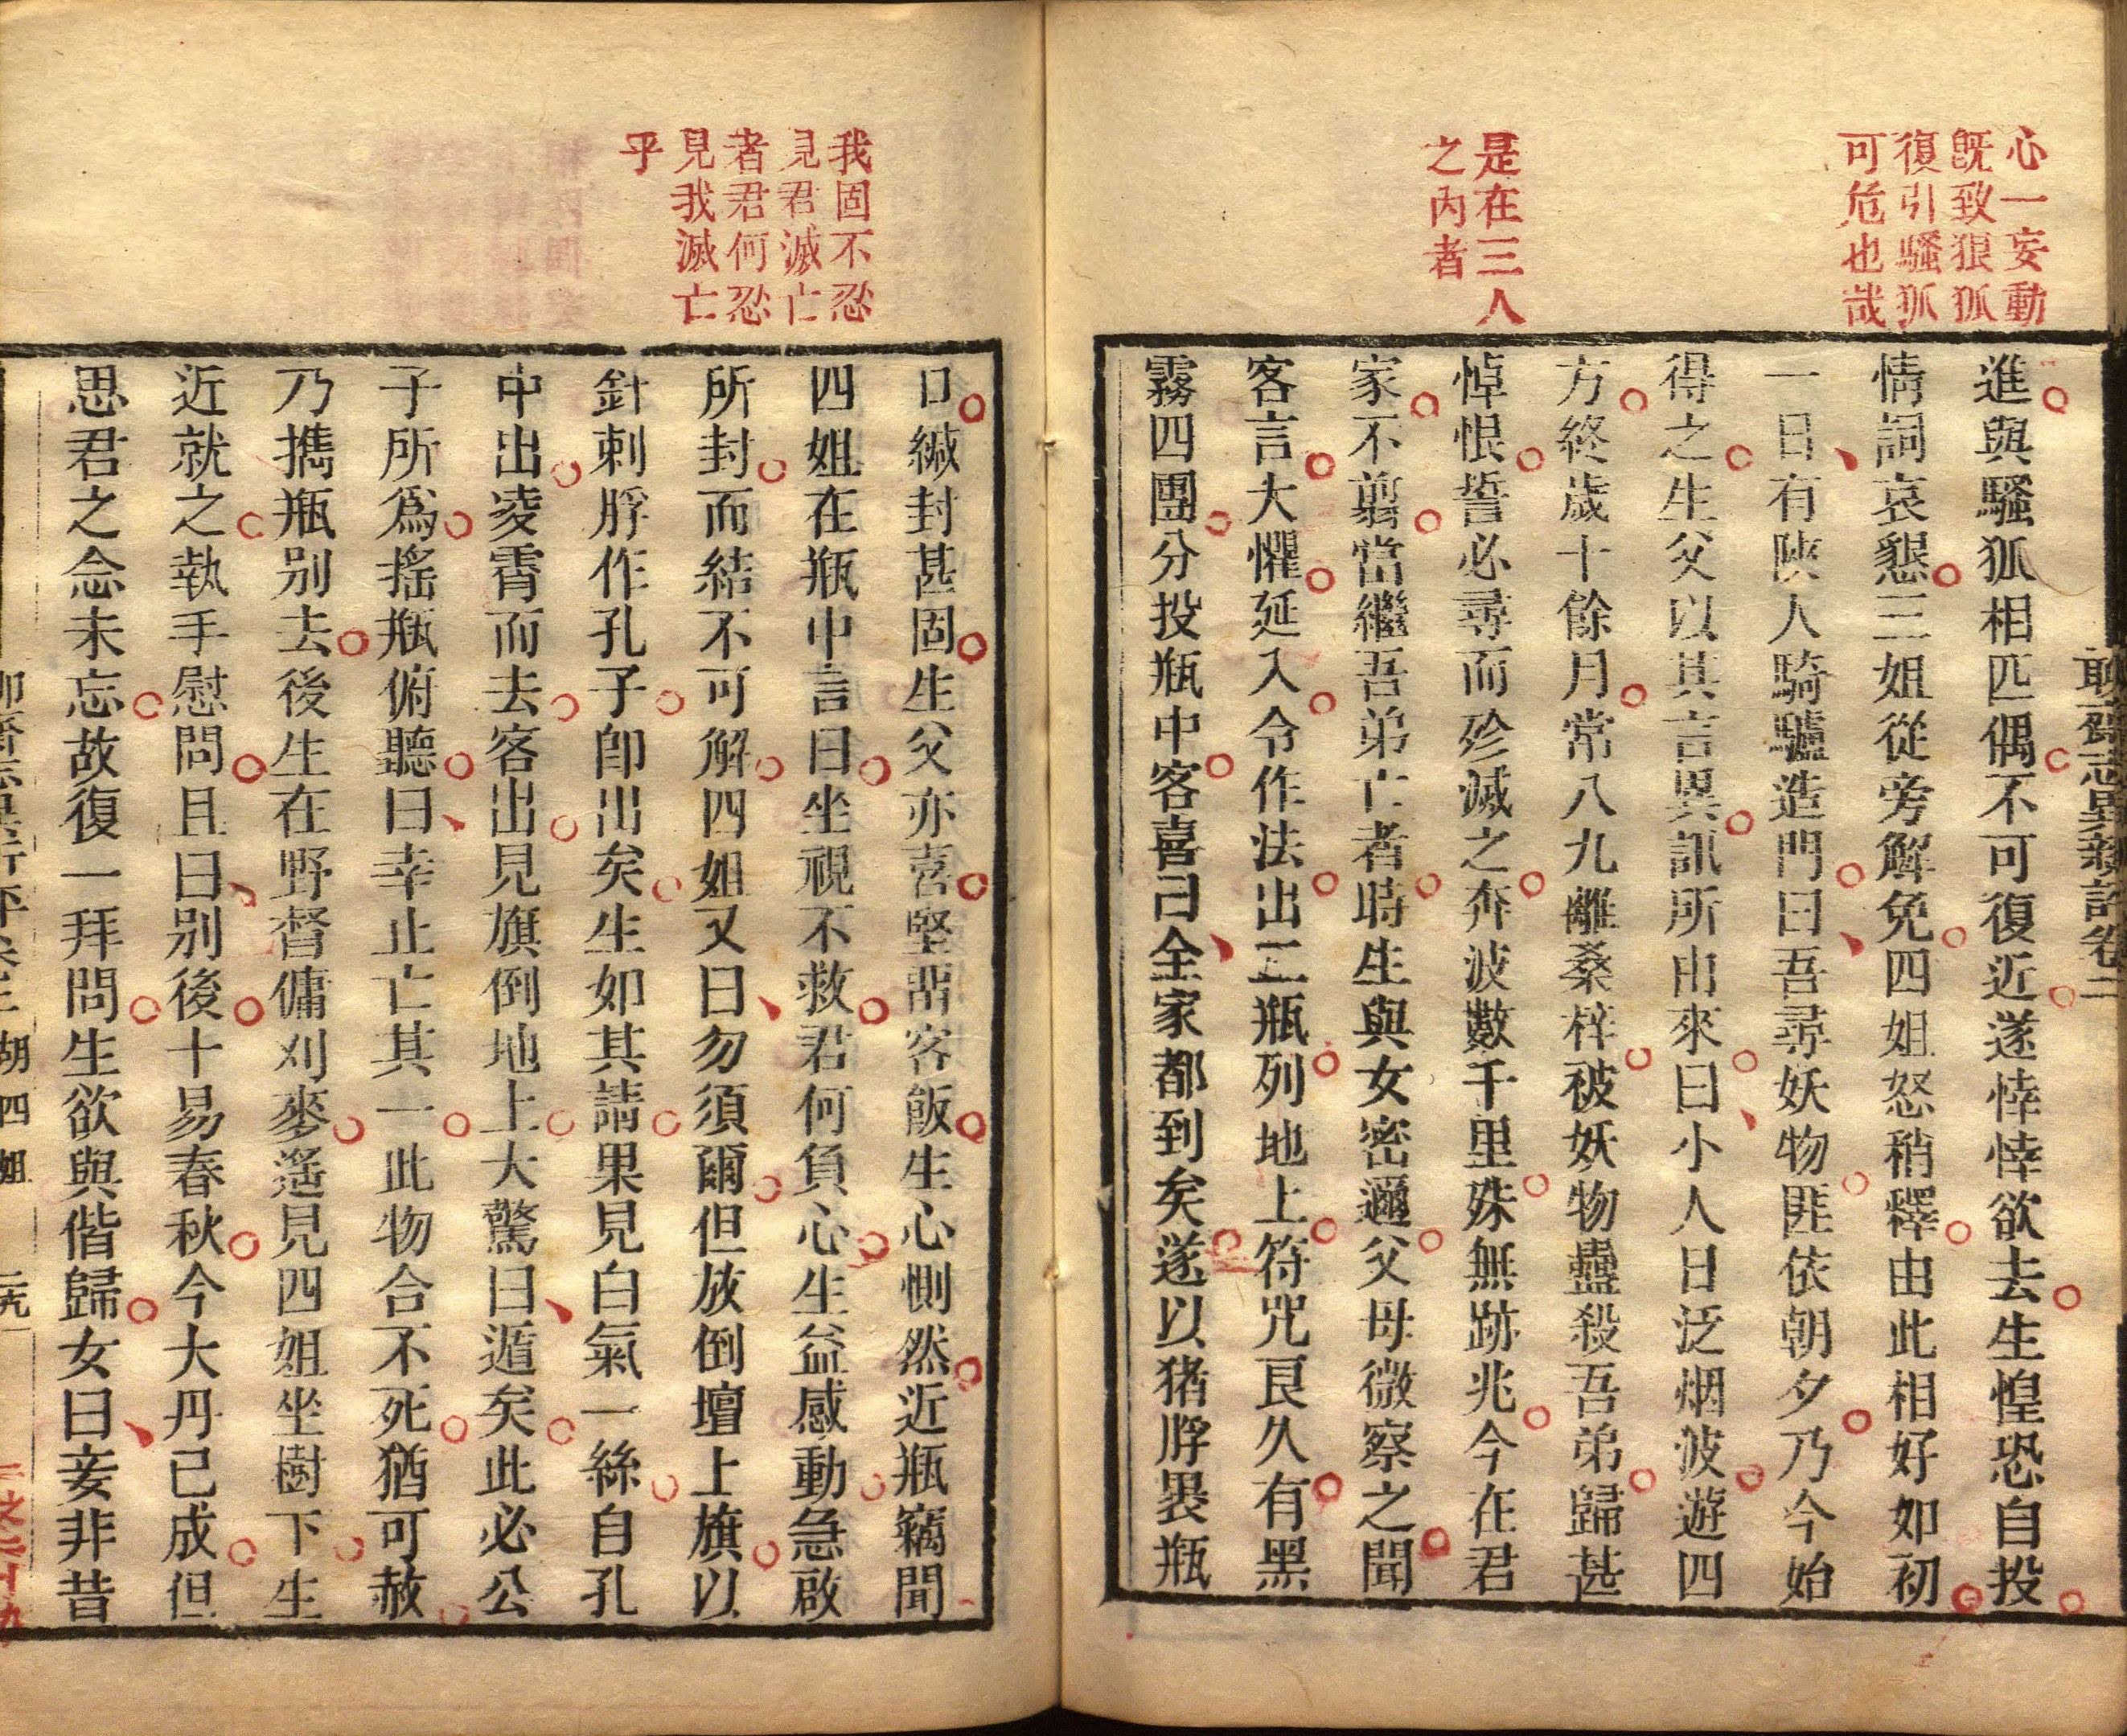 聊齋志異新評卷二
心一妄動
旣致狠狐
復引騷狐
可危也哉
是在三人
之內者
進與騷狐相匹偶不可復近遂悻悻欲去生惶恐自投
情詞哀懇三姐從旁解免四姐怒稍釋由此相好如初
一日有陝人騎驢造門曰吾尋妖物匪依朝夕乃今始
得之生父以其言異訊所由來曰小人日泛烟波遊四
方終歲十餘月常八九離桑梓被妖物蠱殺吾弟歸甚
悼恨誓必尋而殄滅之奔波數千里殊無跡兆今在君
家不翦當繼吾弟亡者時生與女密邇父母微察之聞
客言大懼延入令作法出二瓶列地上符咒良久有黑
霧四團分投瓶中客喜曰全家都到矣遂以猪脬裹瓶
我固不忍
見君滅亡
者君何忍
見我滅亡
乎
口緘封甚固生父亦喜堅留客飯生心惻然近瓶竊聞
四姐在瓶中言曰坐視不救君何負心生益感動急啟
所封而結不可解四姐又曰勿須爾但放倒壇上旗以
針刺脬作孔子卽出矣生如其請果見白氣一絲自孔
中出凌霄而去客出見旗倒地上大驚曰遁矣此必公
子所爲搖瓶俯聽曰幸止亡其一此物合不死猶可赦
乃攜瓶別去後生在野督傭刈麥遙見四姐坐樹下生
近就之執手慰問且曰別後十易春秋今大丹已成但
思君之念未忘故復一拜問生欲與偕歸女曰妾非昔
胡四姐